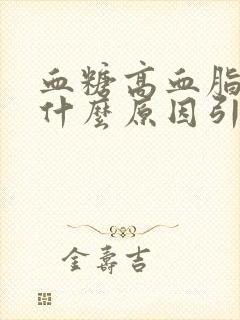 血糖高血脂
什麼原因引
金壽吉